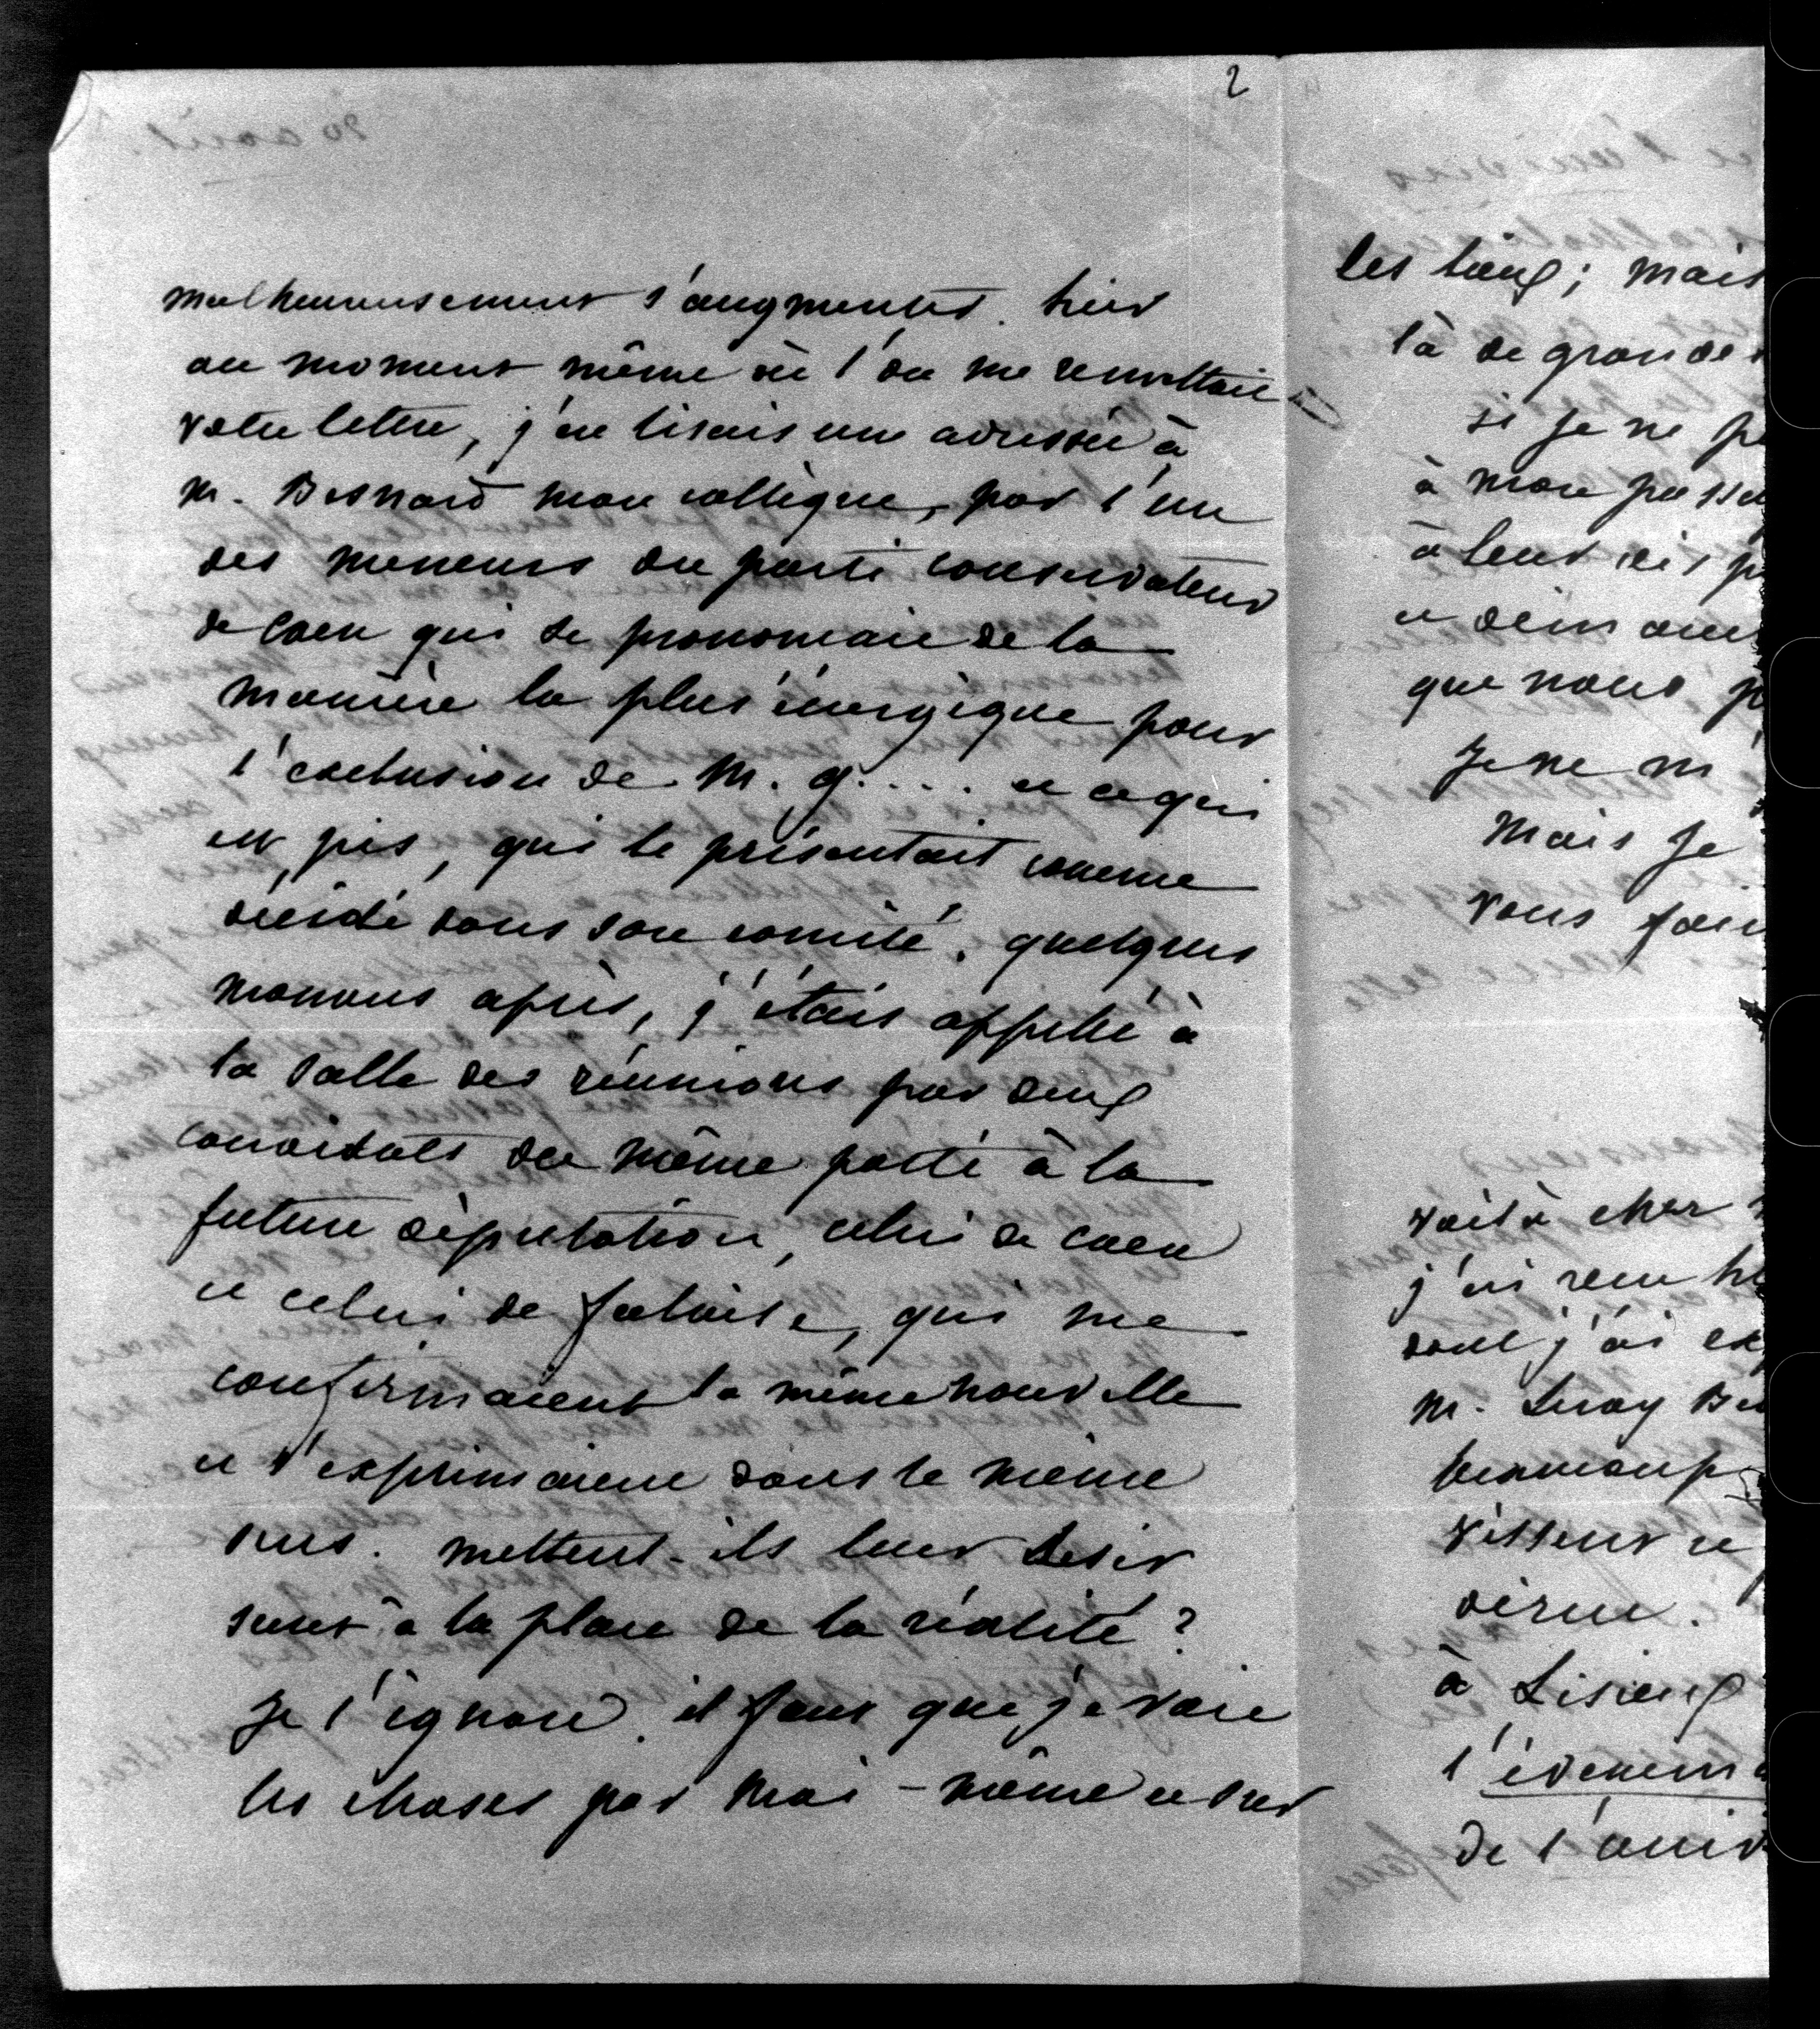 2
malheureusement s'augmenter. hier
au moment même où l'on me remettait
votre lettre, j'en lisais une adressée à
M. Besnard mon collègue, par l'un
des meneurs du parti conservateur
de Caen qui se prononçait de la
manière la plus énergique pour
l'exclusion de M. G.... et ce qui
est pis, qui le présentait comme
décidé dans son comité. quelques
moments après, j'étais appelé à
la salle des réunions par deux
candidats du même parti à la
future députation, celui de Caen
et celui de falaise, qui me
confirmaient la même nouvelle
et s'exprimaient dans le même
sens. mettent-ils leur désir
secret à la place de la réalité ?
Je l'ignore. il faut que je voie
les choses par moi-même et sur
les lieux ; mais
là de grandes
si je ne
à mon
à leur
que nous
Je ne m
Mais Je
vous
voilà cher
j'ai
dont j'ai
M. Leroy
beaucoup
à Lisieux
de l'